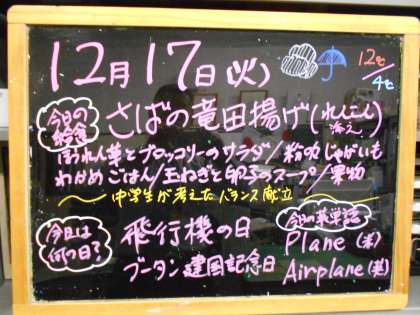 12月17日(火) 12℃/4℃
今日の給食 さばの竜田揚げ(れんこん添え)
ほうれん草とブロッコリーのサラダ/粉吹じゃがいも
わかめごはん/玉ねぎと卵のスープ/果物
中学生が考えたバランス献立
今日は何の日? 飛行機の日
ブータン建国記念日
今日の英単語
Plane (米)
Airplane (米)